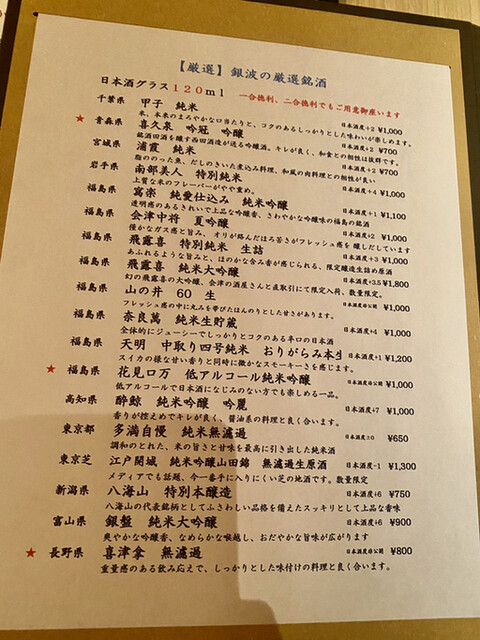 【厳選】銀波の厳選銘酒
日本酒グラス120ml 一合徳利、二合徳利でもご用意御座います
千葉県 甲子 純米 日本酒度+2 ¥1,000
米、本来のまろやかな口当たりと、コクのあるしっかりとした味わいが楽しめます。
★ 青森県 喜久泉 吟冠 吟醸 日本酒度+2 ¥700
銘酒田酒を醸す西田酒造が送る吟醸酒。キレが良く、和食との相性は抜群です。
宮城県 浦霞 純米 日本酒度+2 ¥700
脂ののった魚、だしのきいた煮込み料理、和風の肉料理との相性が良い
岩手県 南部美人 特別純米 日本酒度+4 ¥1,000
上質な米のフレーバーがやや重め。
福島県 寫楽 純愛仕込み 純米吟醸 日本酒度+1 ¥1,100
透明感のあるきれいで上品な吟醸香、さわやかな吟醸味の福島の銘酒
福島県 会津中将 夏吟醸 日本酒度+2 ¥1,000
僅かなガス感と旨み、オリが絡んだほろ苦さがフレッシュ感を醸しだしています
福島県 飛露喜 特別純米 生詰 日本酒度+3 ¥1,000
あふれるような旨みと、ほのかな含み香が感じられる、限定醸造生詰め原酒
福島県 飛露喜 純米大吟醸 日本酒度+3.5 ¥1,800
幻の飛露喜の大吟醸、会津の酒屋さんと直取引にて限定入荷、数量限定。
福島県 山の井 60 生 日本酒度非公開 ¥1,000
フレッシュ感の中に丸みを帯びたほんのりとした甘さがあります。
福島県 奈良萬 純米生貯蔵 日本酒度+4 ¥1,000
全体的にジューシーでしっかりとコクのある辛口の日本酒
福島県 天明 中取り四号純米 おりがらみ本生 日本酒度+1 ¥1,200
スイカの様な甘い香りと同時に微かなスモーキーさを感じます。
★ 福島県 花見ロ万 低アルコール純米吟醸 日本酒度非公開 ¥1,000
低アルコールで日本酒になじみのない方でも楽しめる一品。
高知県 酔鯨 純米吟醸 吟麗 日本酒度+7 ¥1,000
香りが控えめでキレが良く、醤油系の料理と良く合います。
東京都 多満自慢 純米無濾過 日本酒度±0 ¥650
調和のとれた、米の旨さと甘味を最高に引き出した純米酒
東京芝 江戸開城 純米吟醸山田錦 無濾過生原酒 日本酒度-1 ¥1,300
メディアでも話題、今一番手に入りにくい芝の地酒です。数量限定
新潟県 八海山 特別本醸造 日本酒度+6 ¥750
八海山の代表銘柄としてふさわしい品格を備えたスッキリとして上品な香味
富山県 銀盤 純米大吟醸 日本酒度+6 ¥900
爽やかな吟醸香、なめらかな喉越し、おだやかな旨味が広がります
★ 長野県 喜津拿 無濾過 日本酒度非公開 ¥800
重量感のある飲み応えで、しっかりとした味付けの料理と良く合います。